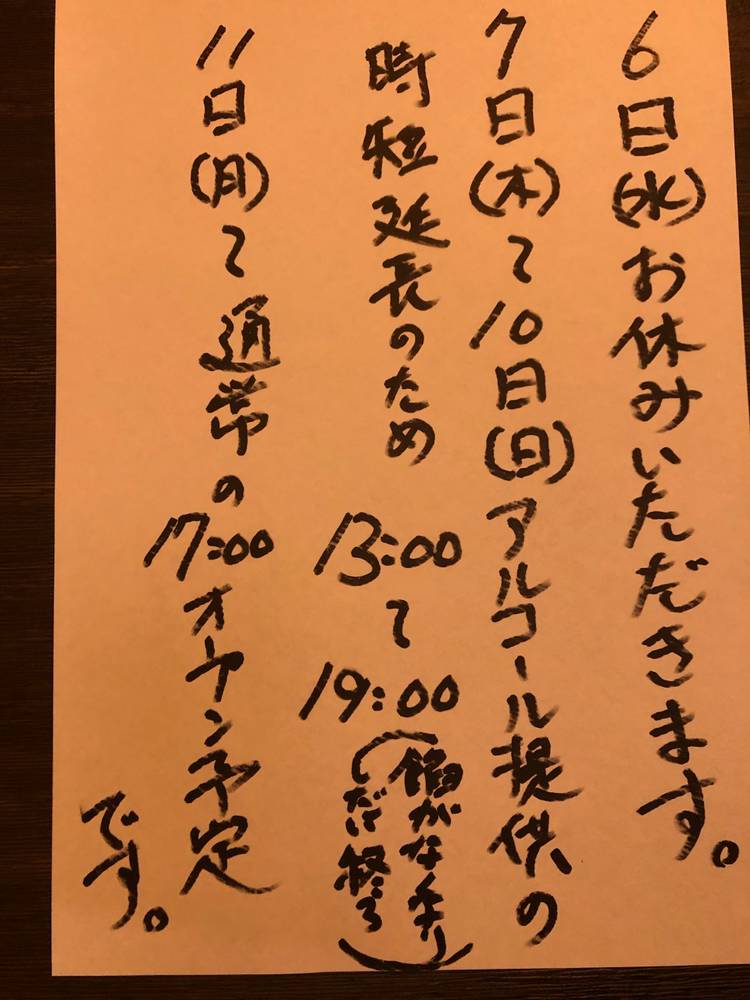 6日(水)お休みいただきます。
7日(木)〜10日(日)アルコール提供の
時短延長のため 13:00〜19:00(餡がなくなり
しだい終了)
11日(月)〜通常の17:00オープン予定
です。